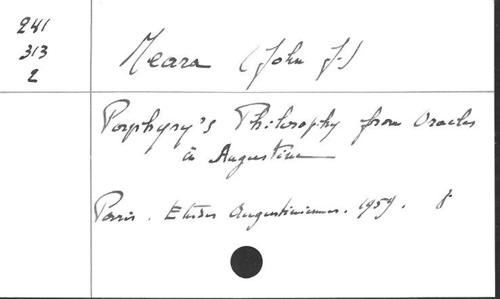 241
313
2
Meara (John J.)
Porphyry's Philosophy from Oracles
in Augustine
Paris. Etudes Augustiniennes. 1959. 8